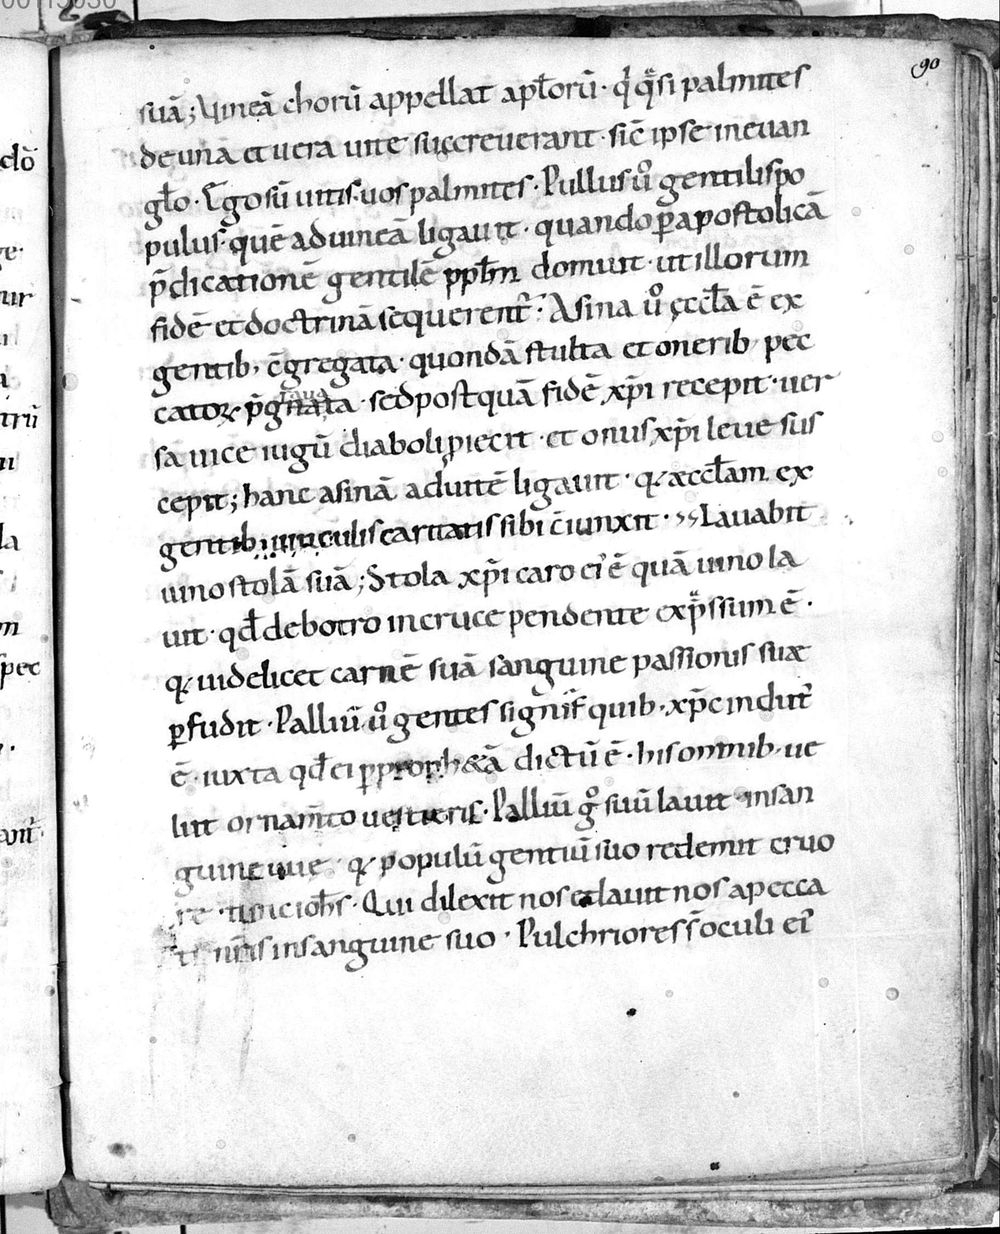 90
suā; Vineā chorū appellat apl̄orū· q̇ q̈si palmites
de una et uera uite succreuerant· sic̄ ipse in euan
gl̄o· Ego sū uitis· uos palmites· Pullus ů gentilis po
pulus· quē ad uineā ligauit· quando ꝑ apostolicā
p̄dicationē gentilē ppl̄m domuit· ut illorum
fidē et doctrinā sequerent̄· Asina ů ęccl̄a ē ex
gentib; c̄gregata· quondā stulta et onerib; pec
catoꝝ p̄grauata· sed postquā fidē xp̄i recepit· uer
sa uice iugū diaboli piecit· et onus xp̄i leue sus
cepit; hanc asinā ad uitē ligauit· q; æccl̄am ex
gentib; uinculis caritatis sibi c̄iunxit· Lauabit
uino stolā suā; Stola xp̄i caro ei' ē quā uino la
uit· qd̄ de botro in cruce pendente exp̄ssum ē·
q; uidelicet carnē suā sanguine passionis suæ
ꝑfudit· Palliū ů gentes signif̄ quib; xp̄c indut'
ē· iuxta qd̄ ei ꝑ proph&ā dictū ē· his omnib; ue
lut ornam̄to uestieris· Palliū g̊ suū lauit in san
guine uue· q; populū gentiū suo redemit cruo
re· iohs̄· Qui dilexit nos et lauit nos a pecca
tis nr̄is in sanguine suo· Pulchriores s̄ oculi ei'